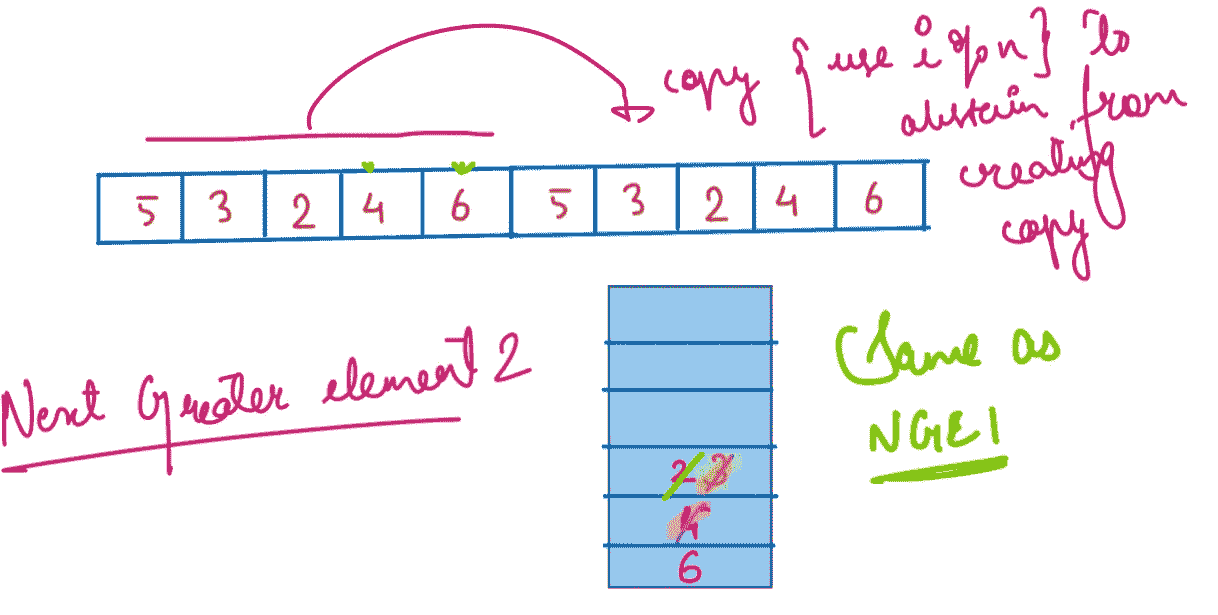 copy {use i%n} to
abstain from
creating
copy
5 3 2 4 6 5 3 2 4 6
Next Greater element 2
Same as
NGE1
2 3
4
6